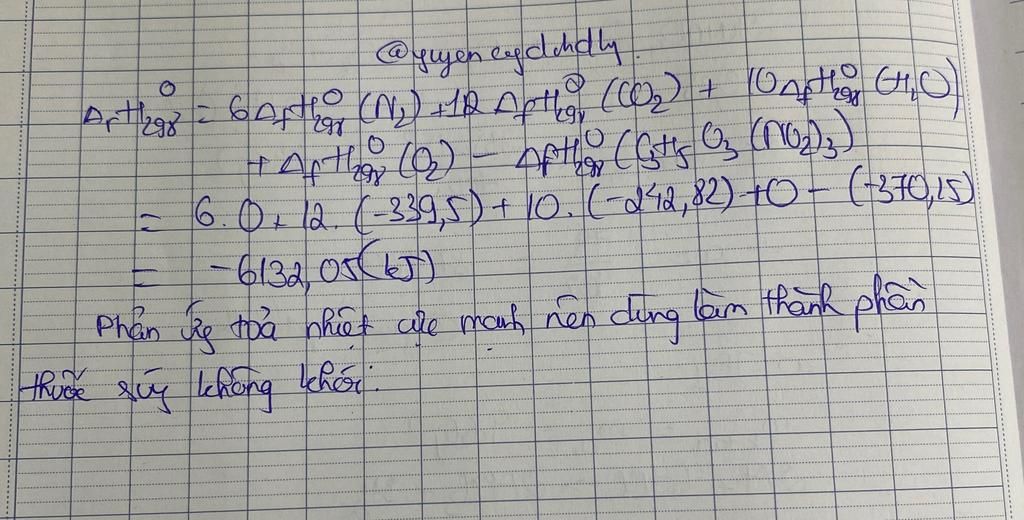 @yuyencydchdly
ΔrH⁰298 = 6ΔfH⁰298 (N2) + 12 ΔfH⁰298 (CO2) + 10ΔfH⁰298 (H2O)
+ ΔfH⁰298 (O2) - ΔfH⁰298 (C3H5O3(NO2)3)
= 6.0 + 12. (-339,5) + 10. (-242,82) + 0 - (-370,15)
= -6132,05(kJ)
Phản ứg toả nhiệt cực mạnh nên dùng làm thành phần
thuốc súg không khói.